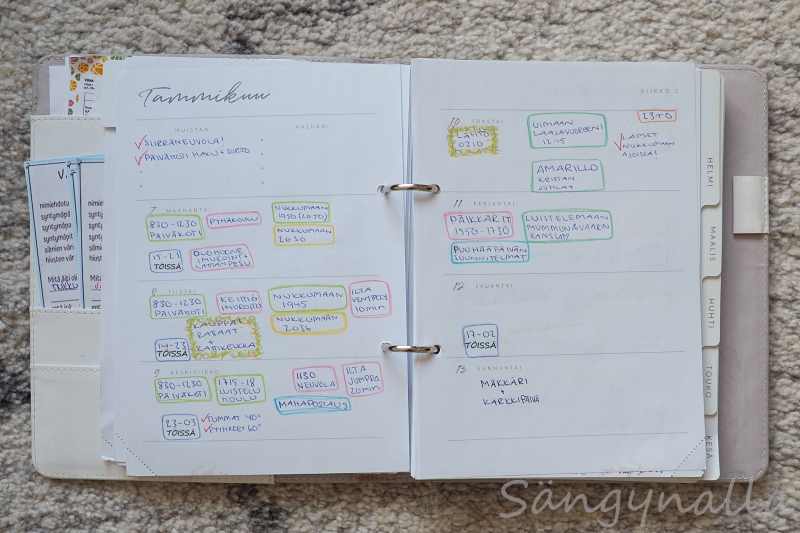 Tammikuu
MUISTAN
HALUAN
SIIRRÄ NEUVOLA!
PÄIVÄKOTI HAKU + SIIRTO
7 MAANANTAI
830-1230
PÄIVÄKOTI
PYHÄKOULU
NUKKUMAAN
NUKKUMAAN
2030
15-23
TÖISSÄ
OLOHUONE
IMUROINTI
LATTIAN PESU
8 TIISTAI
830-1230
PÄIVÄKOTI
KEITTIÖ
IMUROINTI
NUKKUMAAN
1945
NUKKUMAAN
2036
ILTA
VENYTTELY
10min
KAUPPA:
+
14-23
TÖISSÄ
9 KESKIVIIKKO
830-1230
PÄIVÄKOTI
1715-18
LUISTELU
KOULU
1130
NEUVOLA
ILTA
JUMPPA
20min
MAHAPOSTAUS
23-03
TÖISSÄ
TUMMAT 40°
PYYHKEET 60°
VIIKKO 2
10 TORSTAI
LÄHTÖ
UIMAAN
LAAJAVUOREEN!
12-15
LAPSET
NUKKUMAAN
AJOISSA!
AMARILLO
KRISTAN
JUHLAT
11 PERJANTAI
PÄIKKÄRIT
1550-1730
LUISTELEMAAN
MUMMUN & VAARIN
KANSSA
PUUHAPÄIVÄN
SUUNNITELMAT
12 LAUANTAI
17-02
TÖISSÄ
13 SUNNUNTAI
MÄKKÄRI
+
KARKKIPÄIVÄ
HELMI
MAALIS
HUHTI
TOUKO
KESÄ
nimiehdotu
syntymäpä
syntymäpa
silmien väri
hiusten väri
Mitä äiti oli
Sängynalla